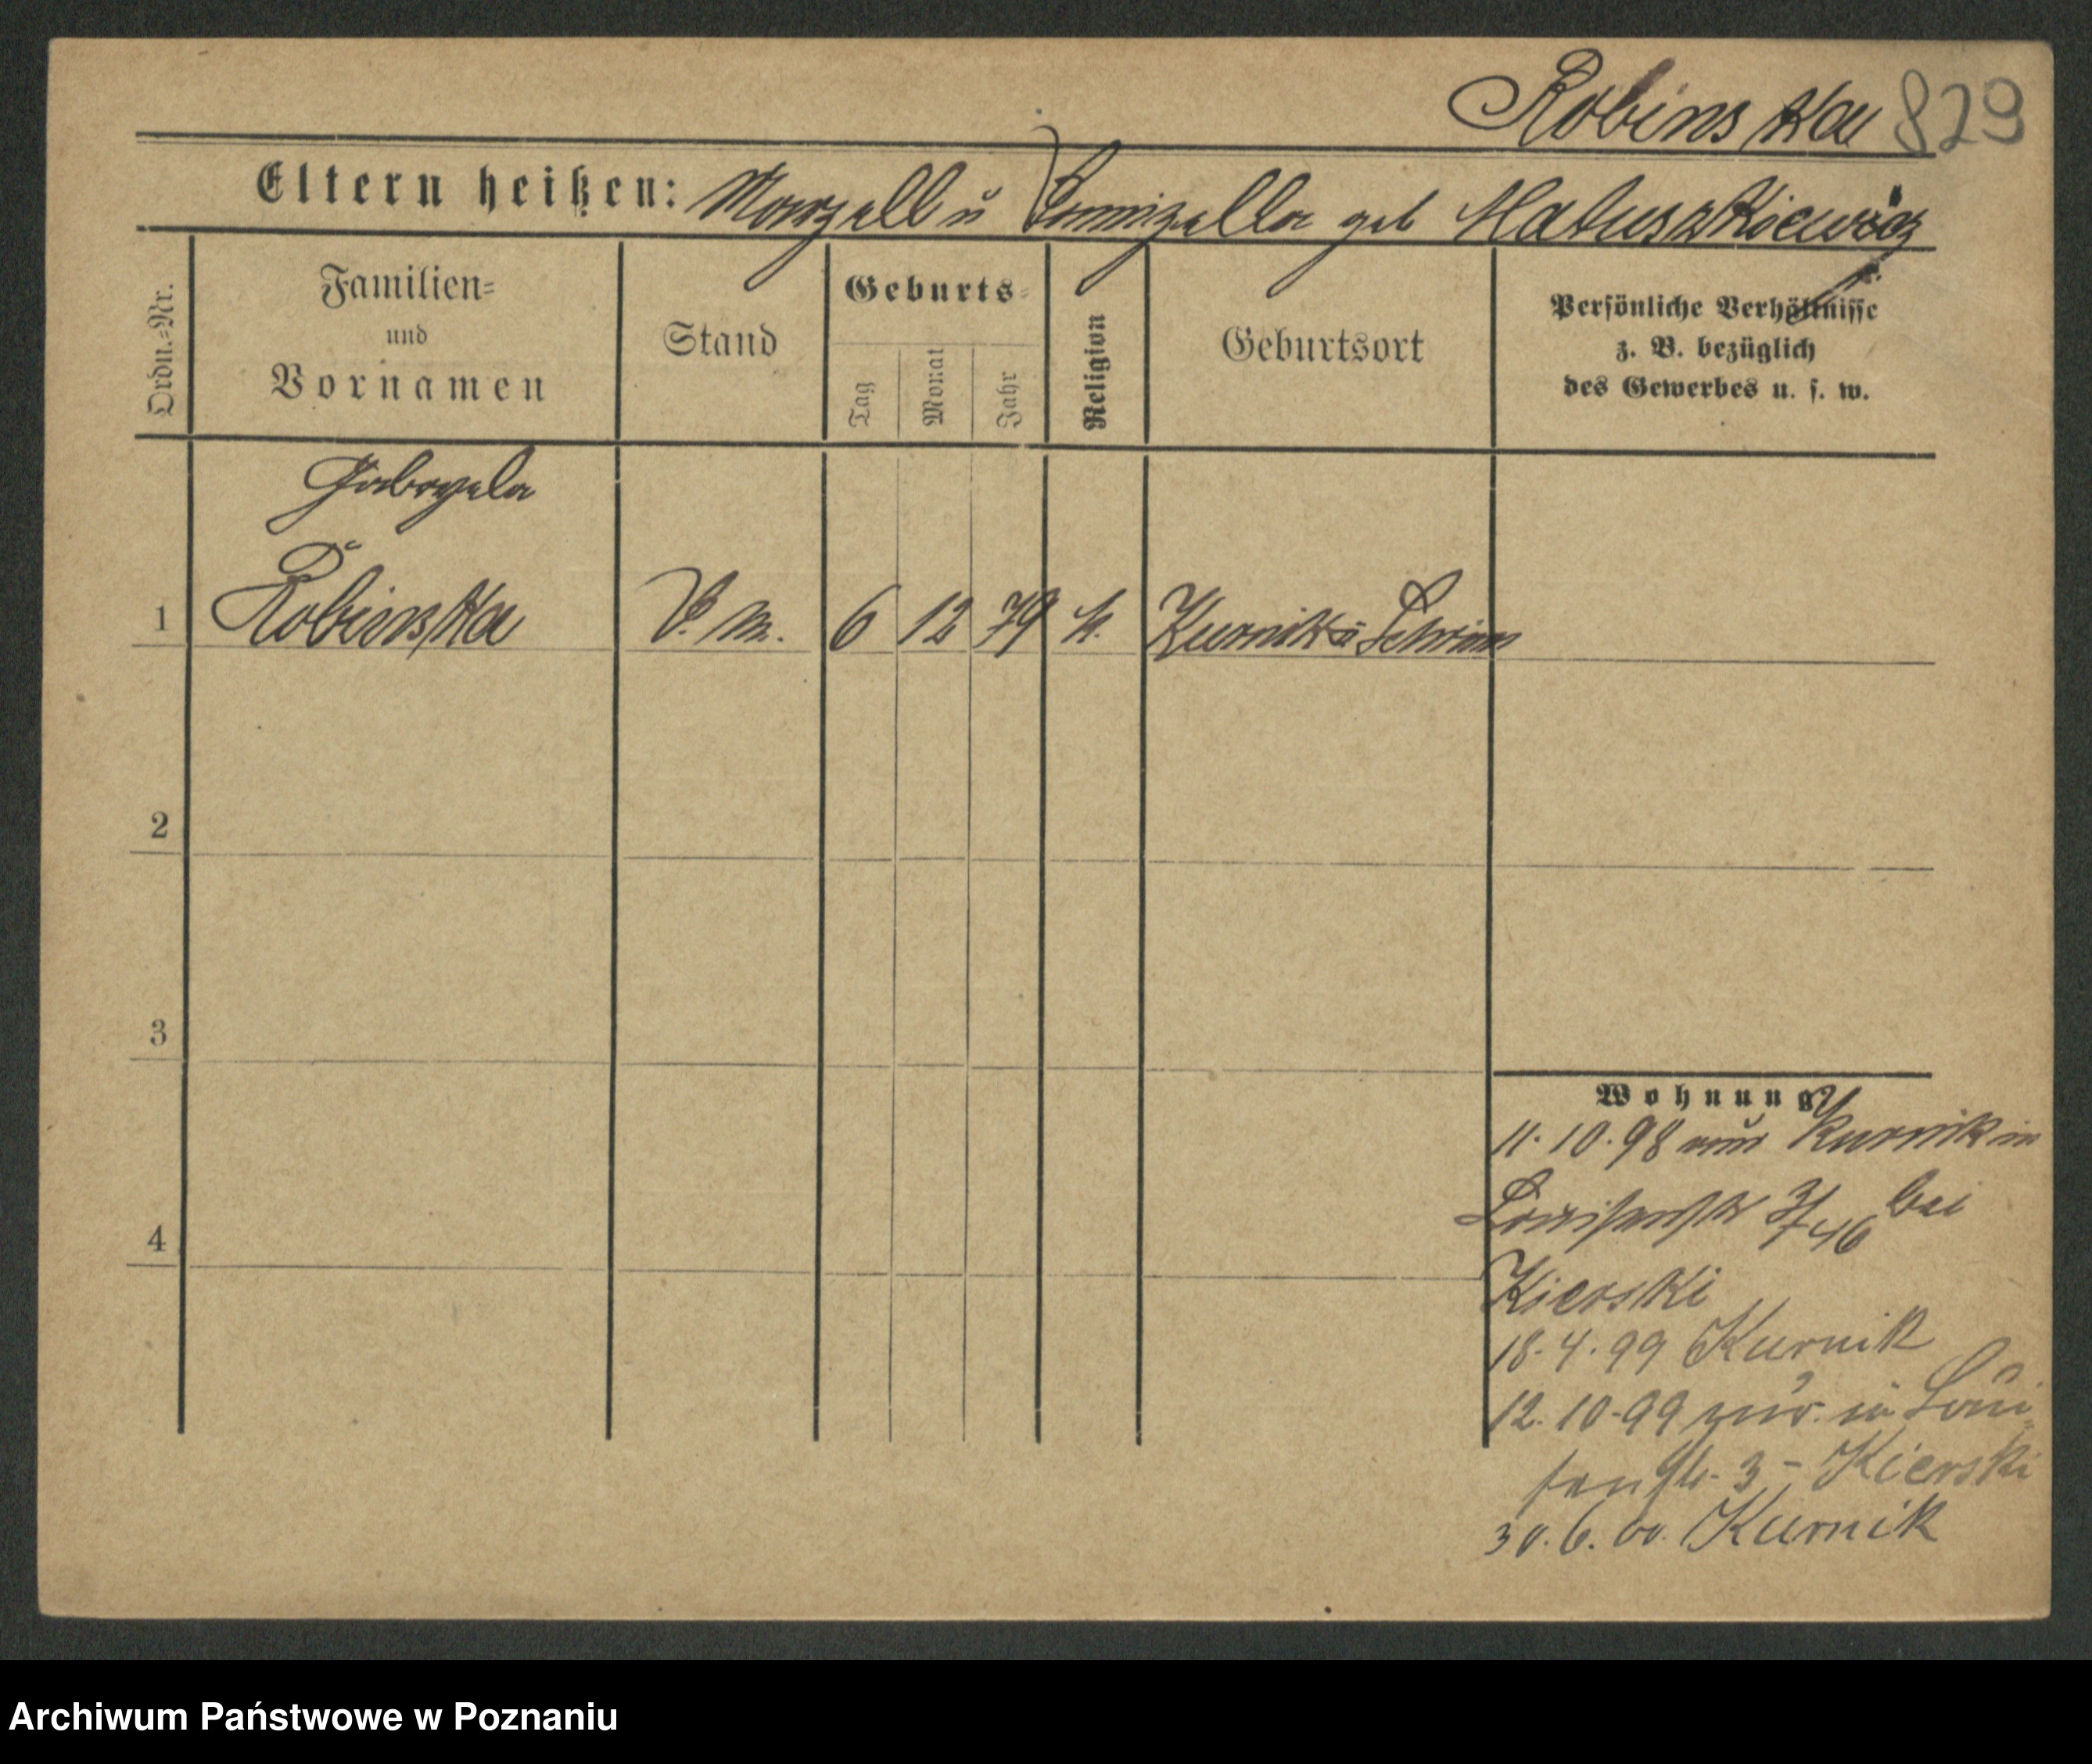 Robinska 829
Eltern heißen: Marzell u Pomizella geb Matuszkiewicz
Ordn.-Nr.
Familien=
und
Vornamen
Stand
Geburts=
Tag
Monat
Jahr
Religion
Geburtsort
Persönliche Verhältnisse
z. B. bezüglich
des Gewerbes u. s. w.
Gabryela
1 Robinska 6 12 79 k. Kurnik Schrimm
2
3
4
Wohnung
11.10.98 aus Kurnik in
Louisenstr 3/46 bei
Kierski
18.4.99 Kurnik
12.10.99 zur. in Loui=
senstr. 3 - Kierski
30.6.00. Kurnik
Archiwum Państwowe w Poznaniu